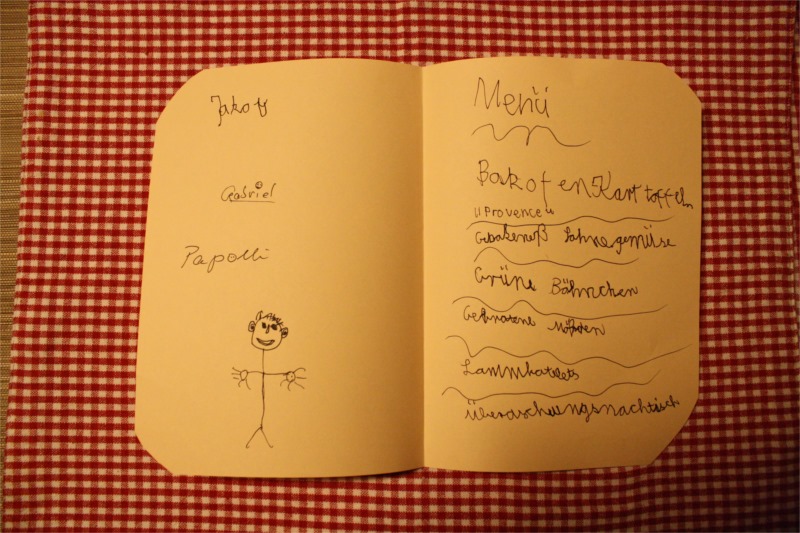 Jakob
Gabriel
Papolli
Menü
BakofenKartoffeln
"Provence"
Gebakeneß Sahnegemüse
Grüne Böhnchen
Gebratene Möhren
Lammkotlets
Überaschungsnachtisch